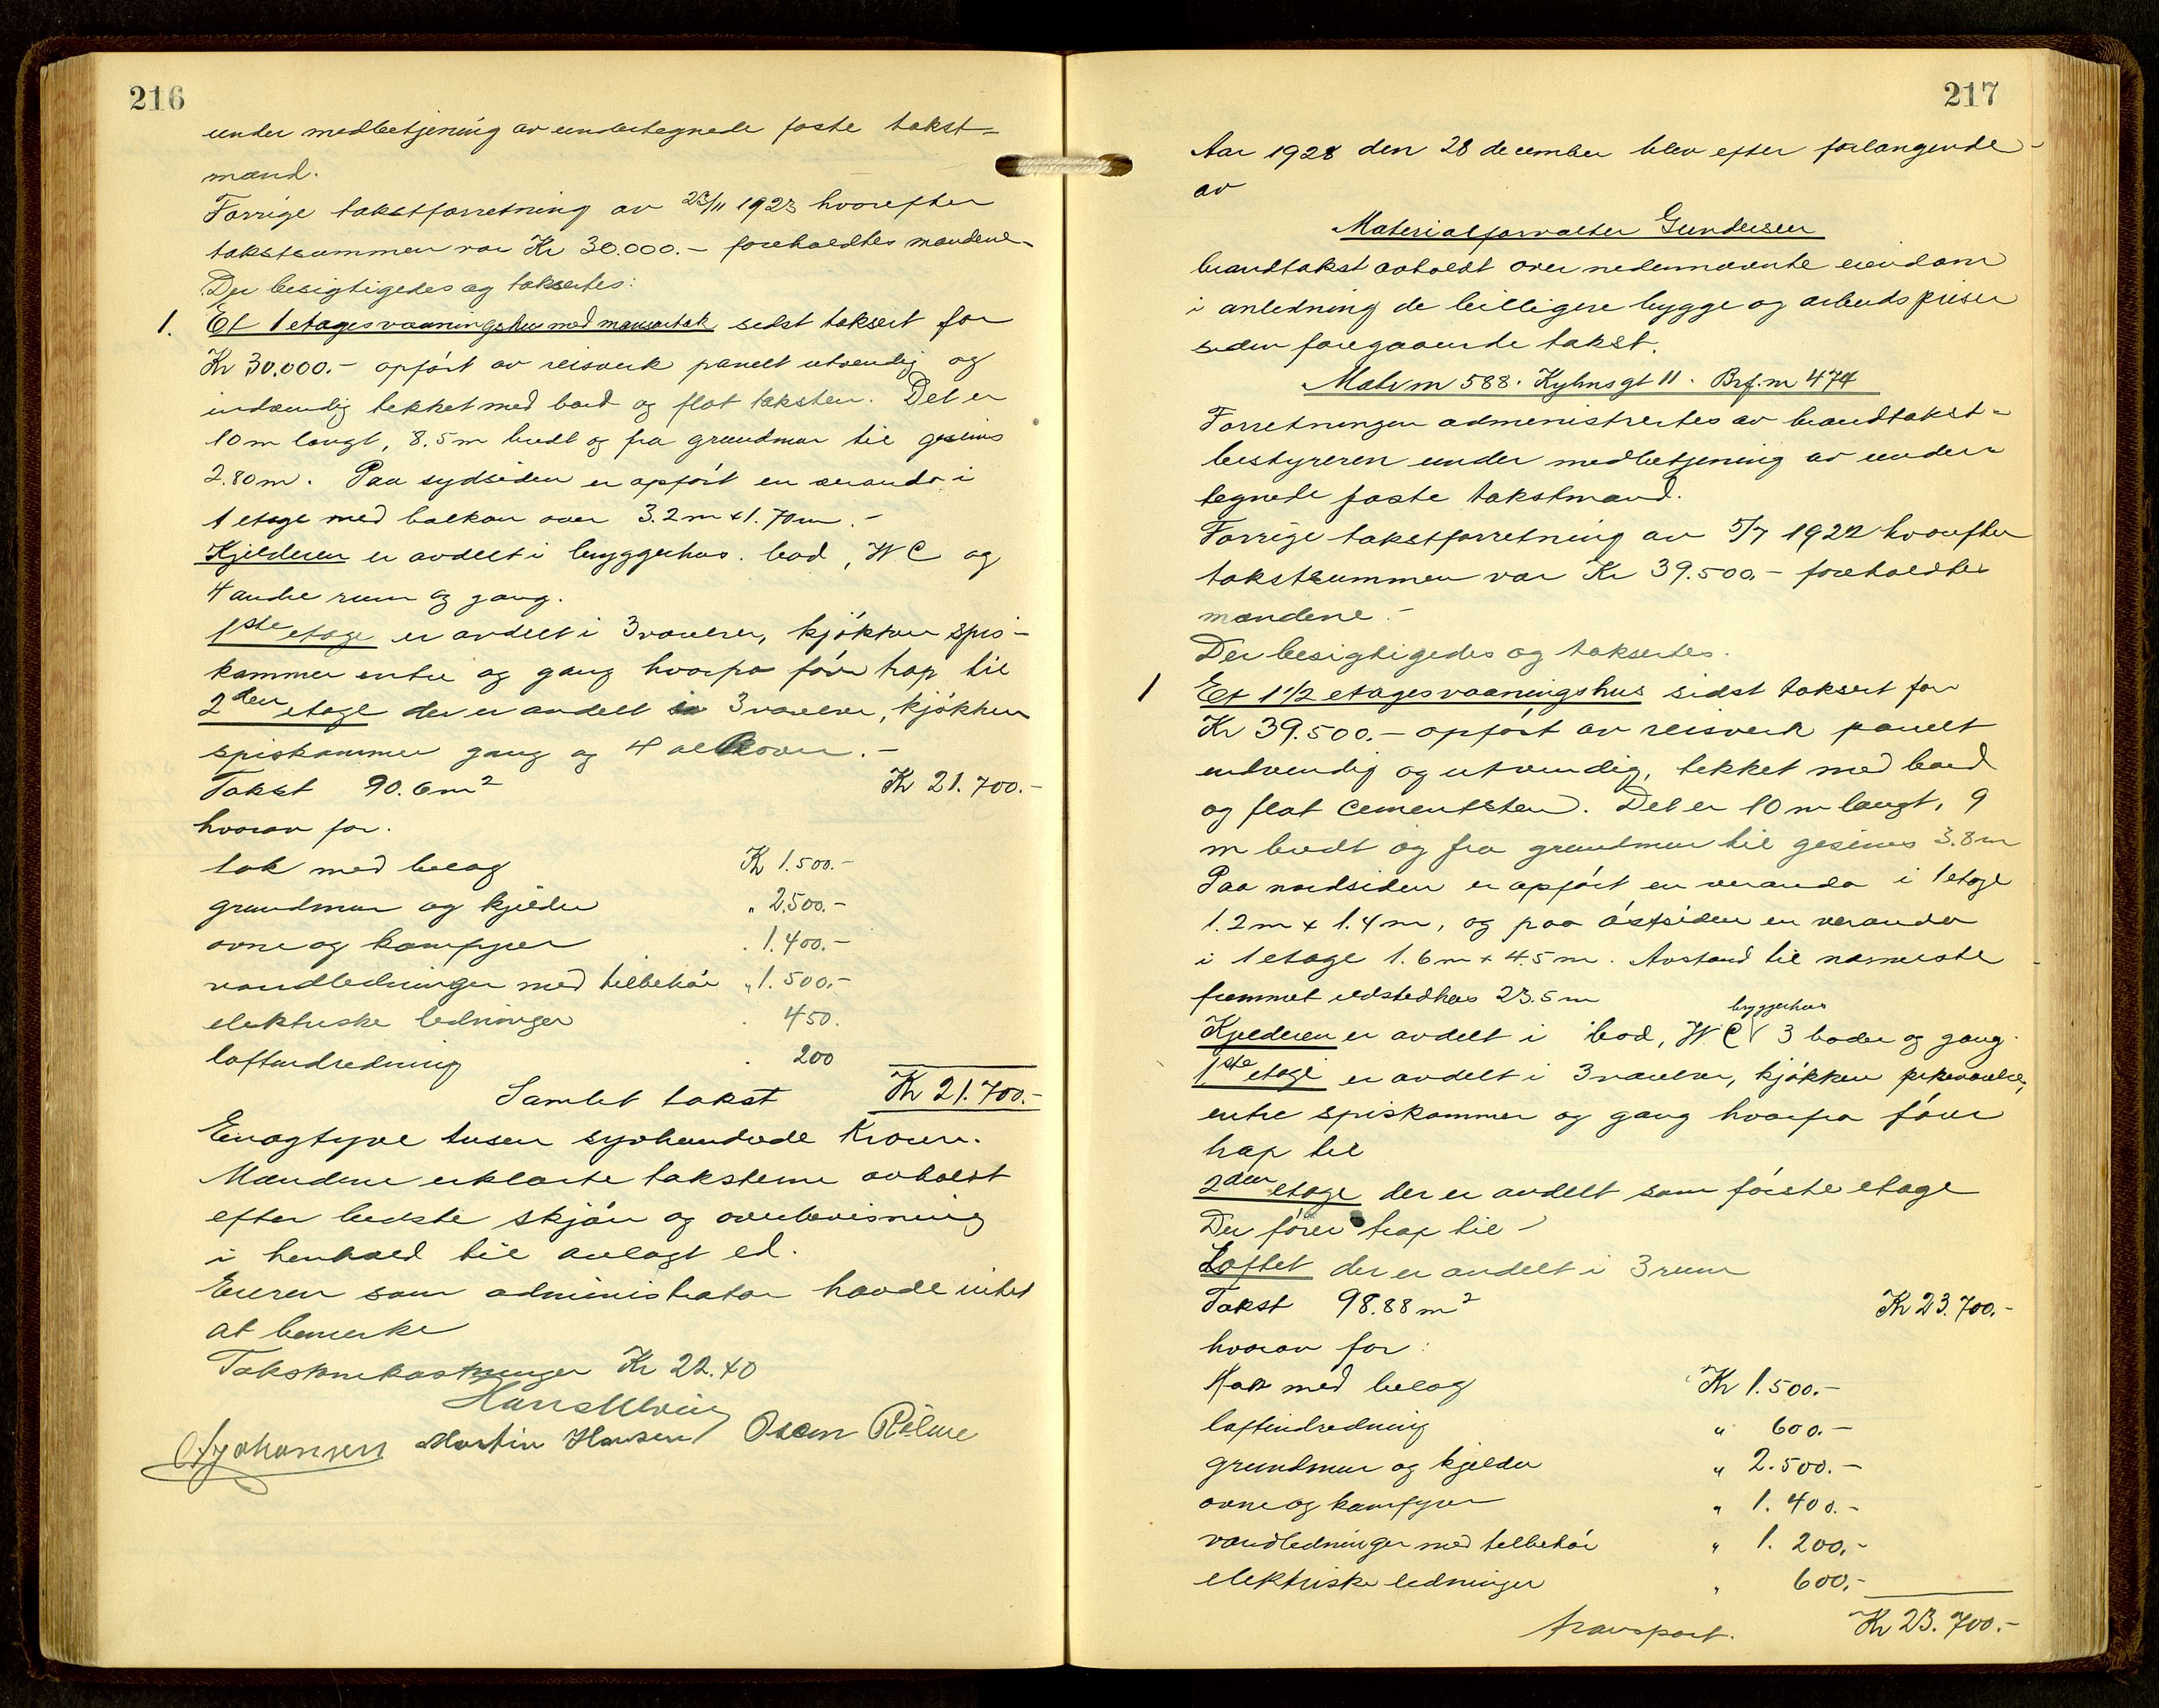 216
under medbetjening av undertegnede faste takst-
mænd.
Forrige takstforretning av 23/11 1923 hvorefter
takstsummen var Kr 30.000.- foreholdtes mændene.
Der besigtigedes og taksertes:
1. Et 1 etages vaaningshus med mansartak sidst taksert for
Kr 30.000.- opført av reisverk panelt utvendig og
indvendig tekket med bord og flat taksten. Det er
10 m langt, 8.5 m bredt og fra grundmur til gesims
2.80 m. Paa sydsiden er opført en veranda i
1 etage med balkon over 3.2 m x 1.70 m.-
Kjelderen er avdelt i bryggerhus. bod, WC og
4 andre rum og gang.
1ste etage er avdelt i 3 værelser, kjøkken spis-
kammer entre og gang hvorfra fører trap til
2den etage der er avdelt i 3 værelser, kjøkken
spiskammer gang og 4 alkover.-
Takst 90.6 m2 Kr 21.700.-
hvorav for.
tak med belag Kr 1.500.-
grundmur og kjelder " 2.500.-
ovne og komfyrer . 1.400.-
vandledninger med tilbehør " 1.500.-
elektriske ledninger . 450.
loftindredning . 200
Samlet takst Kr 21.700.-
Enogtyve tusen syvhundrede Kroner.
Mændene erklærte taksterne avholdt
efter bedste skjøn og overbevisning
i henhold til avlagt ed.
Eieren som administrator havde intet
at bemerke
Takstomkostninger Kr 22.40
Hans Ulving
A Johansen Martin Hansen Oscar Rølme
217
Aar 1928 den 28 december blev efter forlangende
av
Materialforvalter Gundersen
brandtakst avholdt over nedennævnte eiendom
i anledning de billigere bygge og arbeidspriser
siden foregaaende takst.
Matr nr 588. Kyhnsgt 11. Brf. nr 474
Forretningen administrertes av brandtakst-
bestyreren under medbetjening av under-
tegnede faste takstmænd.
Forrige takstforretning av 5/7 1922 hvorefter
takstsummen var Kr 39.500.- foreholdtes
mændene.-
Der besigtigedes og taksertes.
1 Et 1 1/2 etages vaaningshus sidst taksert for
Kr 39.500.- opført av reisverk panelt
indvendig og utvendig, tekket med bord
og flat cementsten. Det er 10 m langt, 9
m bredt og fra grundmur til gesims 3.8 m
Paa nordsiden er opført en veranda i 1 etage
1.2 m x 1.4 m, og paa østsiden en veranda
i 1 etage 1.6 m x 4.5 m. Avstand til nærmeste
fremmet ildstedhus 23.5 m
bryggerhus
Kjelderen er avdelt i bod, WC V 3 boder og gang.
1ste etage er avdelt i 3 værelser, kjøkken pikeværelse,
entre spiskammer og gang hvorfra fører
trap til
2den etage der er avdelt som første etage
Der fører trap til
Loftet der er avdelt i 3 rum
Takst 98.88 m2 Kr 23.700.-
hvorav for:
tak med belag Kr 1.500.-
loftindredning " 600.-
grundmur og kjelder " 2.500.-
ovne og komfyrer " 1.400.-
vandledninger med tilbehør " 1.200.-
elektriske ledninger " 600.-
transport. Kr 23.700.-